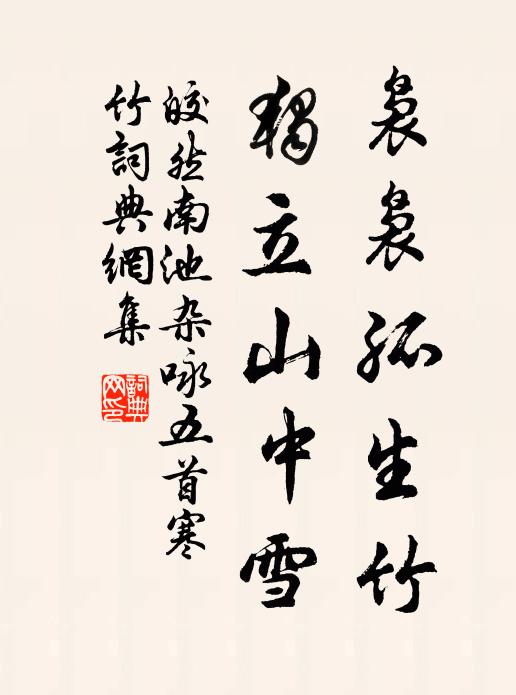 裊裊孤生竹
獨立山中雪
皎然南池杂咏五首寒
竹詞典網集
詞典
网印